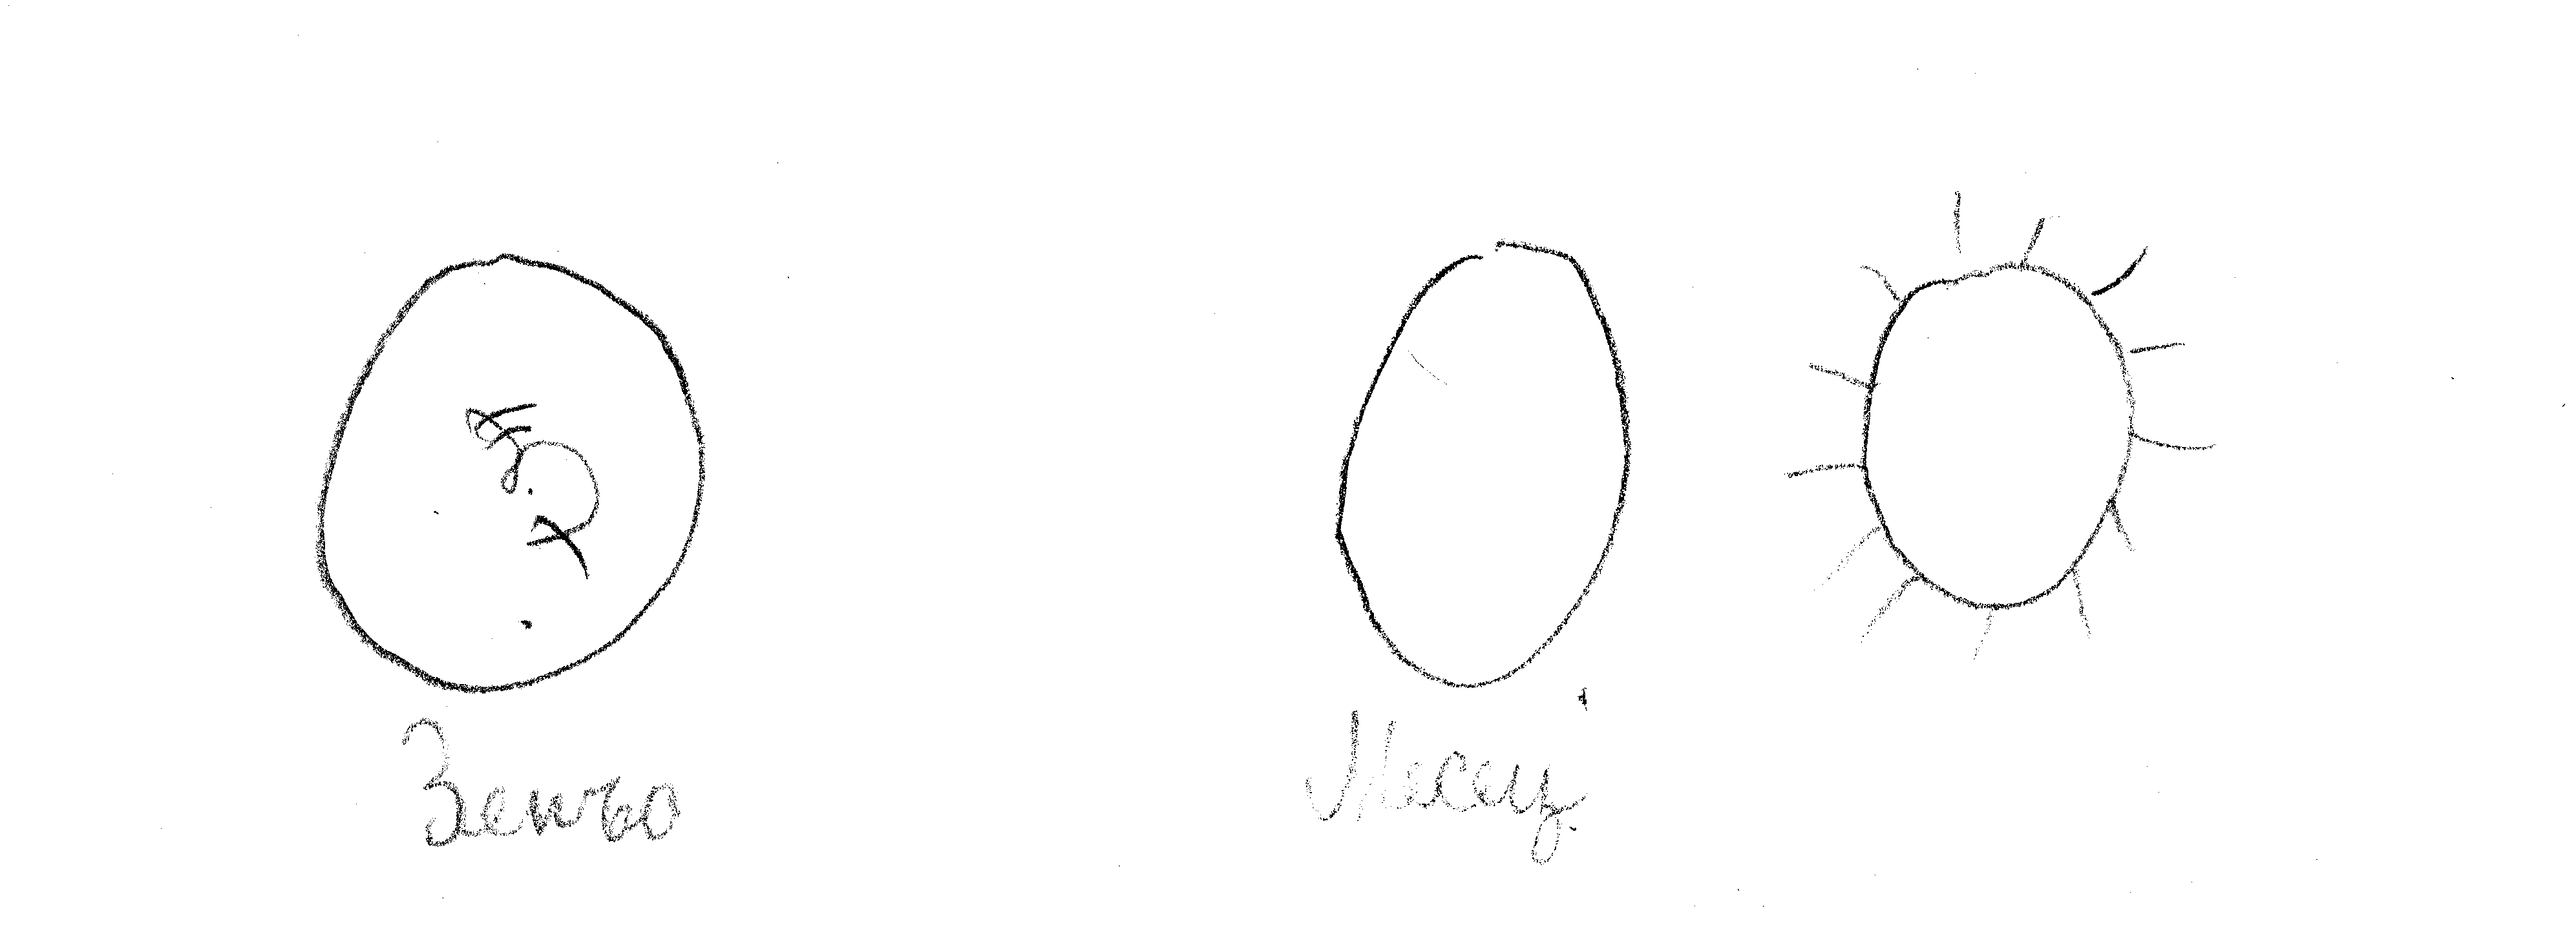 Земља Месец